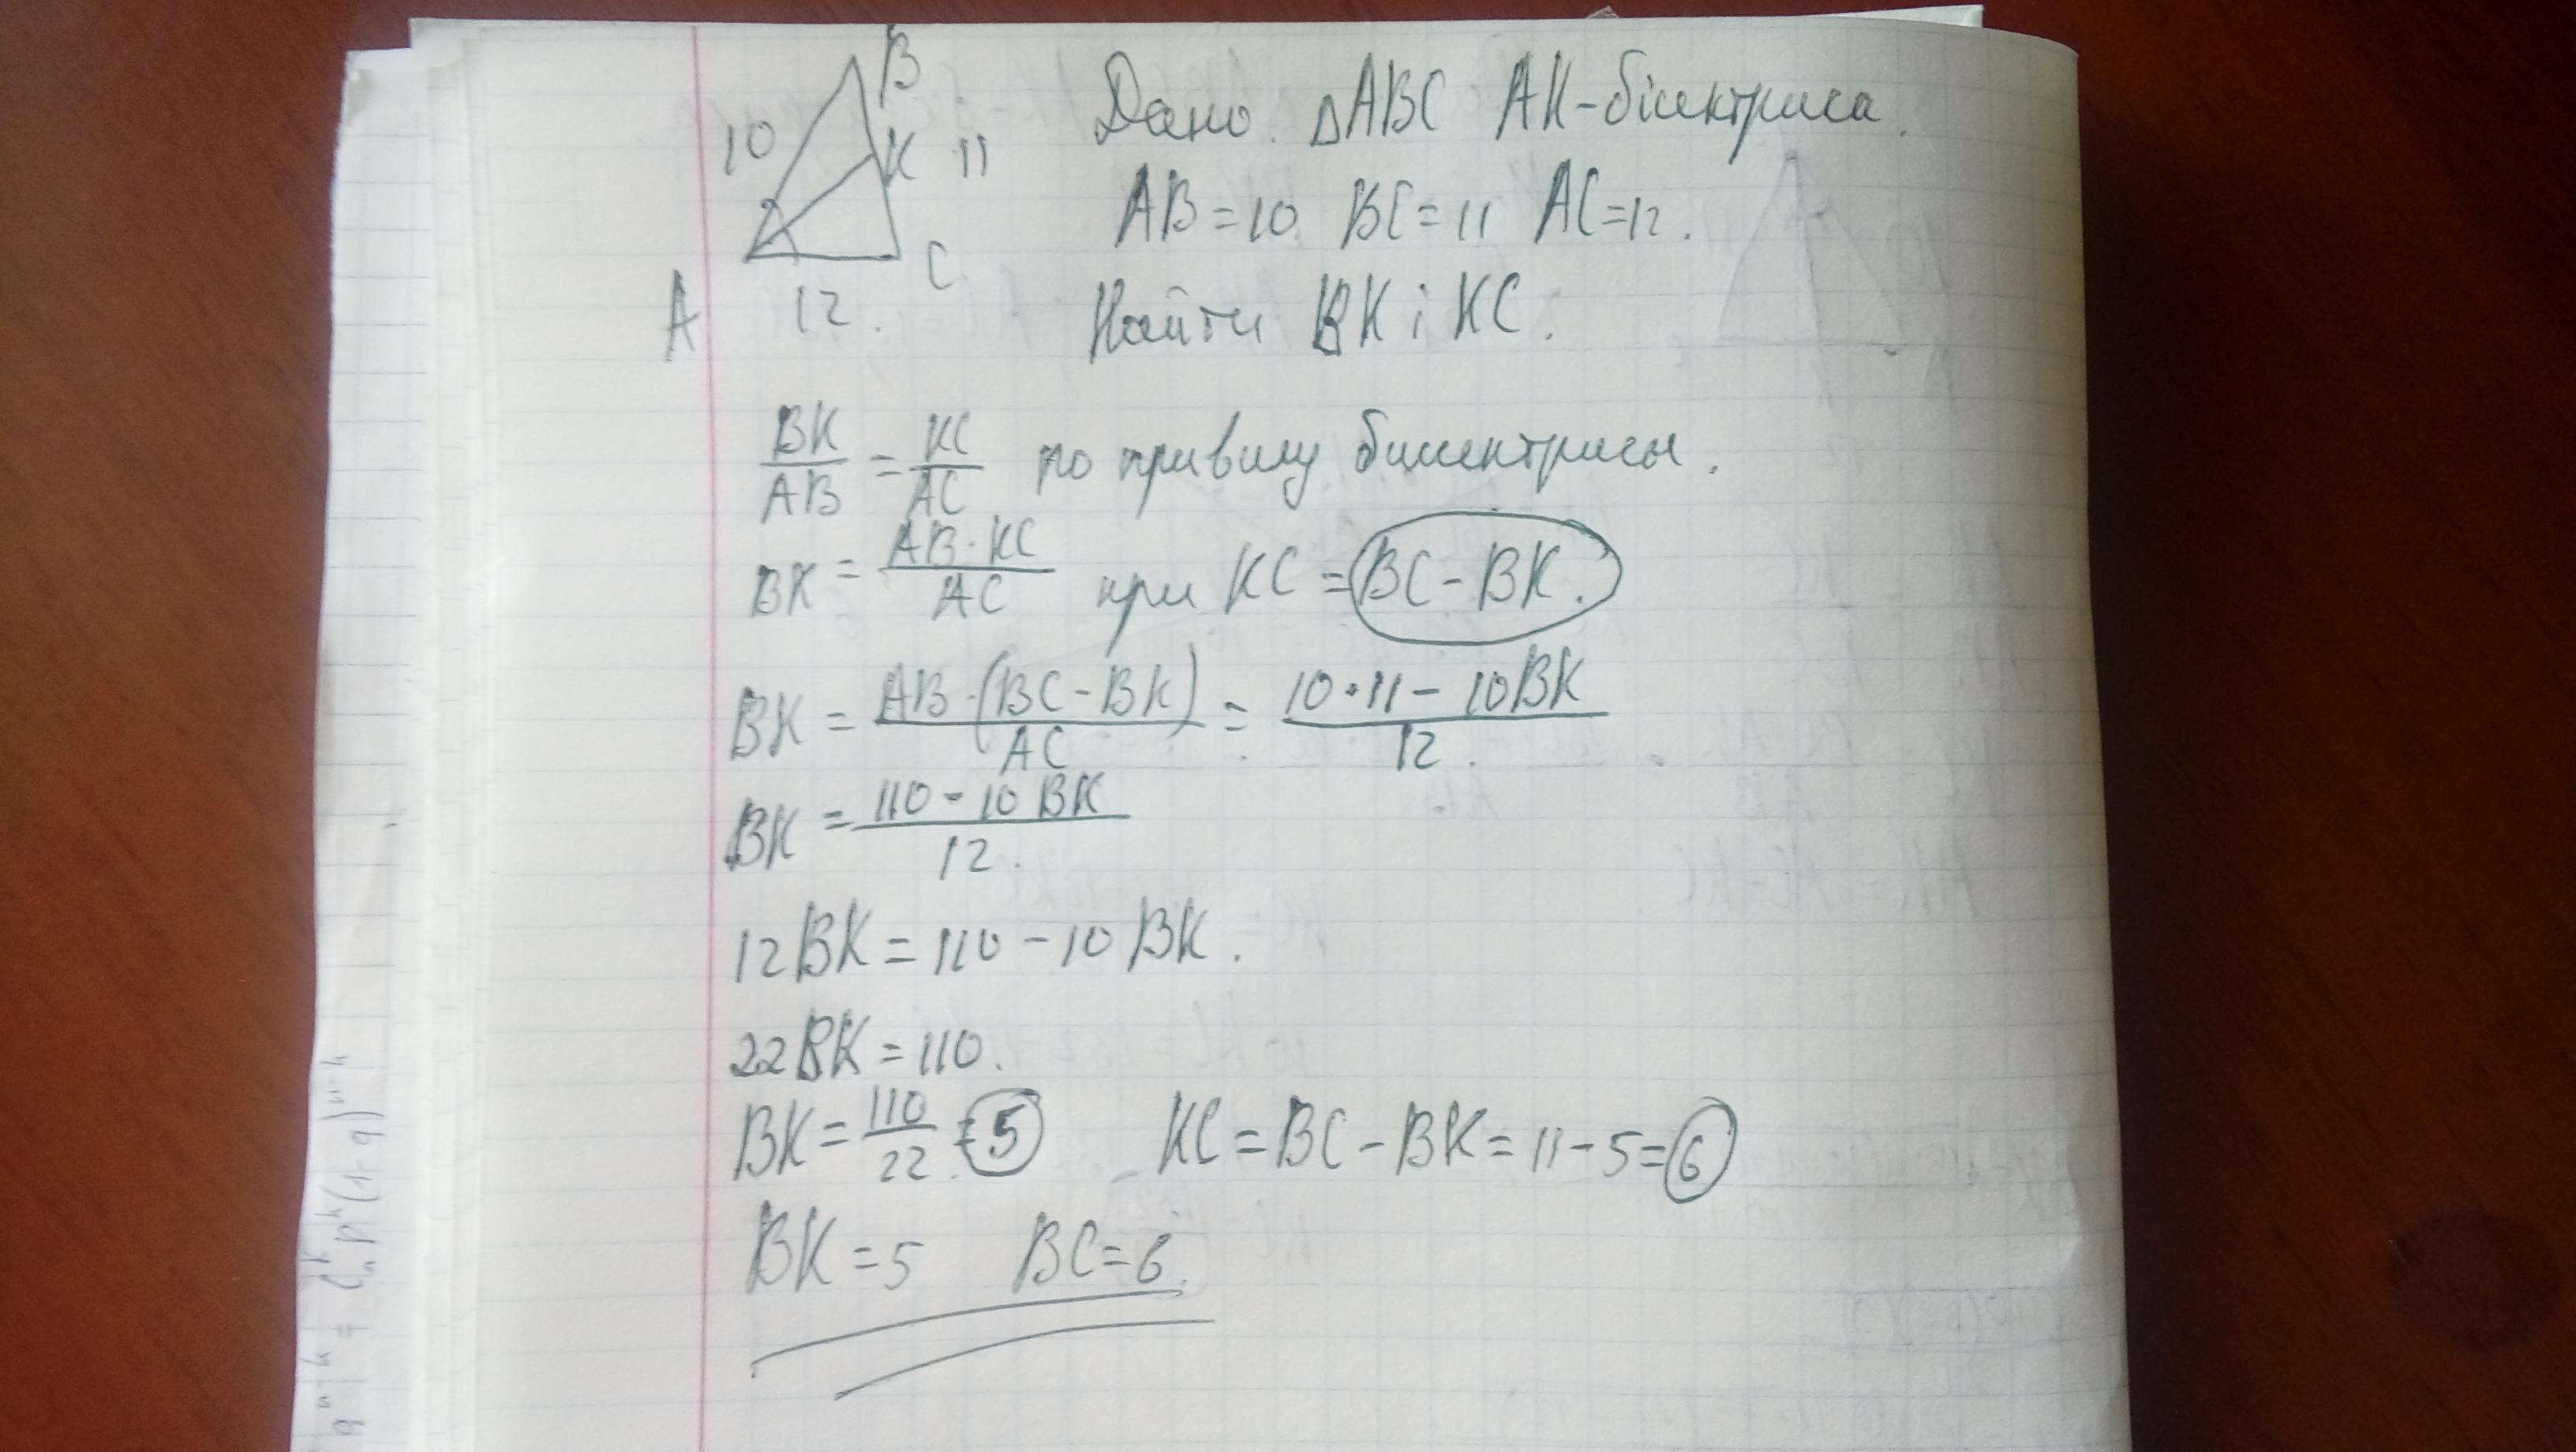 B
10
K 11
A
12.
C
Дано. △ABC AK-бісектриса.
AB=10 BC=11 AC=12.
Найти BK і KC.
BK/AB = KC/AC по правилу биссектрисы.
BK = AB·KC/AC при KC = BC-BK.
BK = AB·(BC-BK)/AC = 10·11-10BK/12.
BK = 110-10BK/12.
12BK=110-10BK.
22BK=110.
BK=110/22=5 KC=BC-BK=11-5=6
BK=5 BC=6.